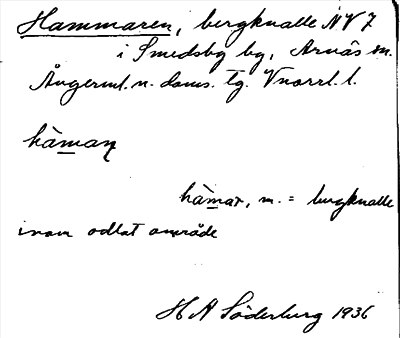 Hammaren, bergknalle NV 7
i Smedsby by, Arnäs sn.
Ångerml. n. doms. tg. Vnorrl. l.
hàmaṇ
hàmar, m. = bergknalle
inom odlat område
H A Söderberg 1936